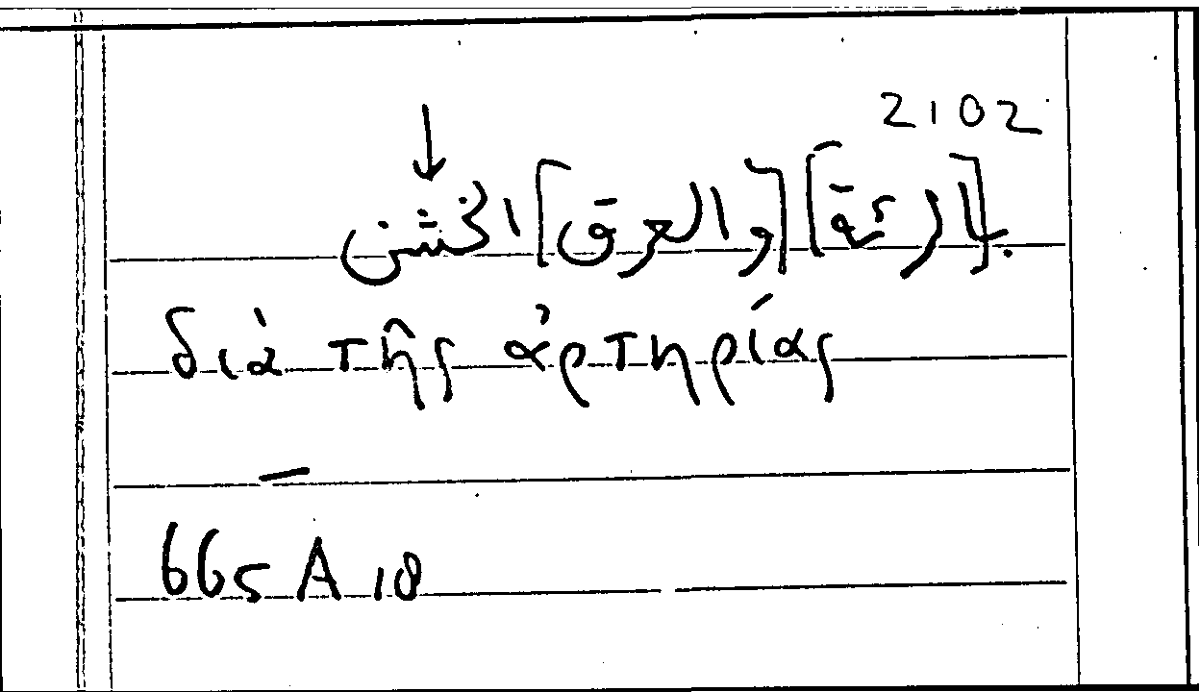 2102
↓
[بالرئة] [والعرق] الخشن
διὰ τῆς ἀρτηρίας
—
665 A 18